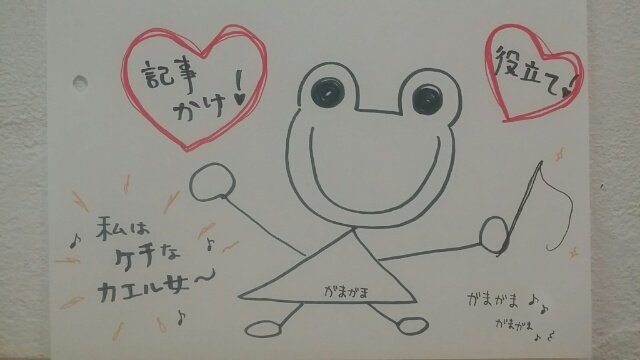 記事
かけ!
役立て!
私は
ケチな
カエル女〜
がまがま
がまがま♪♪
がまがま♪